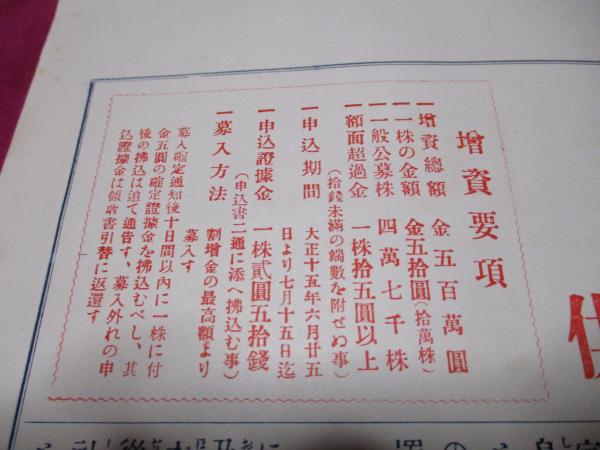 增資要項
一增資總額　金五百萬圓
一一株の金額　金五拾圓(拾萬株)
一一般公募株　四萬七千株
一額面超過金　一株拾五圓以上
(拾錢未滿の端數を附せぬ事)
一申込期間　大正十五年六月廿五
日より七月十五日迄
一申込證據金　一株貳圓五拾錢
(申込書二通に添へ拂込む事)
一募入方法　割增金の最高額より
募入す
募入確定通知後十日間以內に一株に付
金五圓の確定證據金を拂込むべし、其
後の拂込は追て通告す、募入外れの申
込證據金は領收書引替に返還す